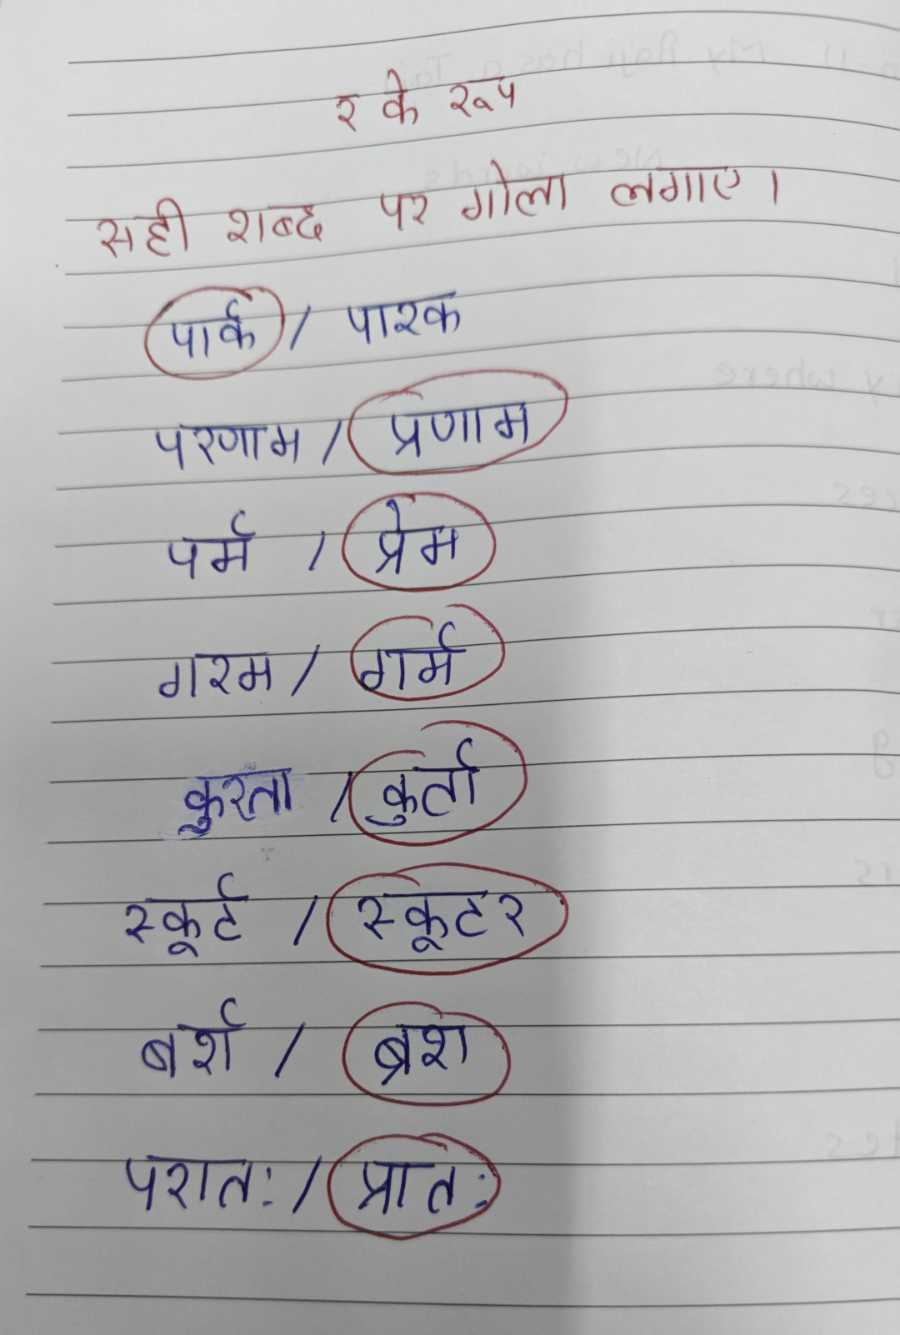 र के रूप
सही शब्द पर गोला लगाए।
पार्क / पारक
परणाम / प्रणाम
पर्म / प्रेम
गरम / गर्म
कुरता / कुर्ता
स्कूर्ट / स्कूटर
बर्श / ब्रश
परातः / प्रातः